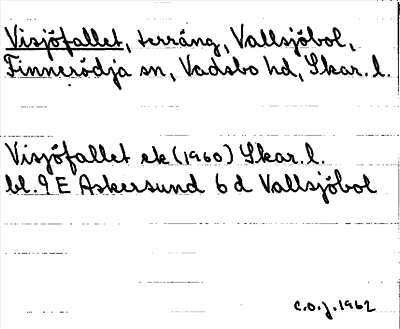 Visjöfallet, terräng, Vallsjöbol,
Finnerödja sn, Vadsbo hd, Skar. l.
Visjöfallet ek (1960) Skar. l.
bl. 9 E Askersund 6 d Vallsjöbol
C.O.J. 1962